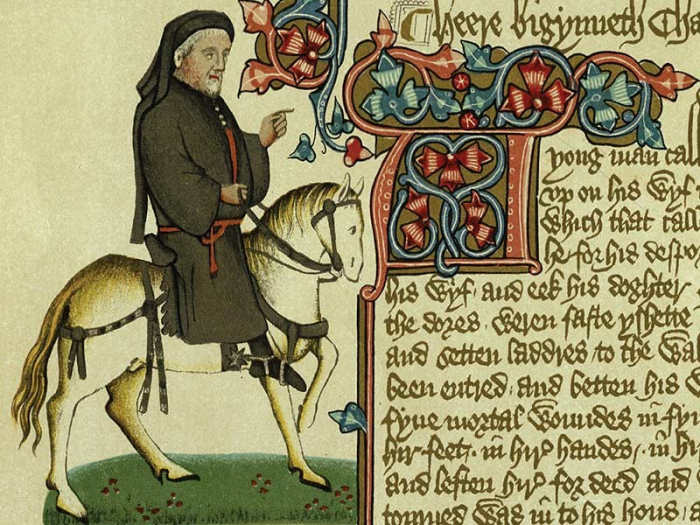 Heere bigynneth Cha
A
yong man call
vp on his wyf
which that call
he for his despor
his wyf, and eek his doghter
the dores weren faste yshette
and setten laddres to the wal
been entred, and betten his w
fyue mortal woundes in fyu
hir feet, in hir handes, in hi
and leften hir for deed and
tourned was in to his hous